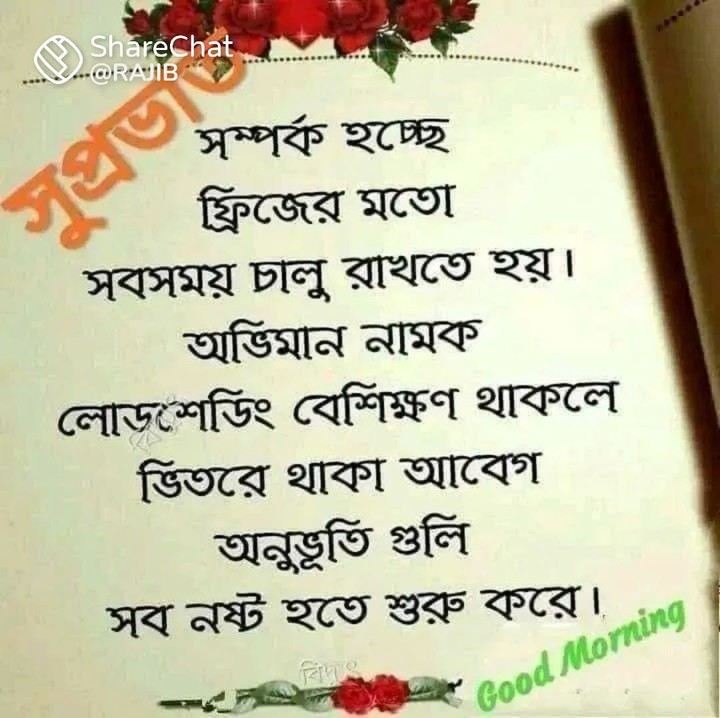 ShareChat
@RAJIB
সুপ্রভাত
সম্পর্ক হচ্ছে
ফ্রিজের মতো
সবসময় চালু রাখতে হয়।
অভিমান নামক
লোডশেডিং বেশিক্ষণ থাকলে
ভিতরে থাকা আবেগ
অনুভূতি গুলি
সব নষ্ট হতে শুরু করে।
Good Morning